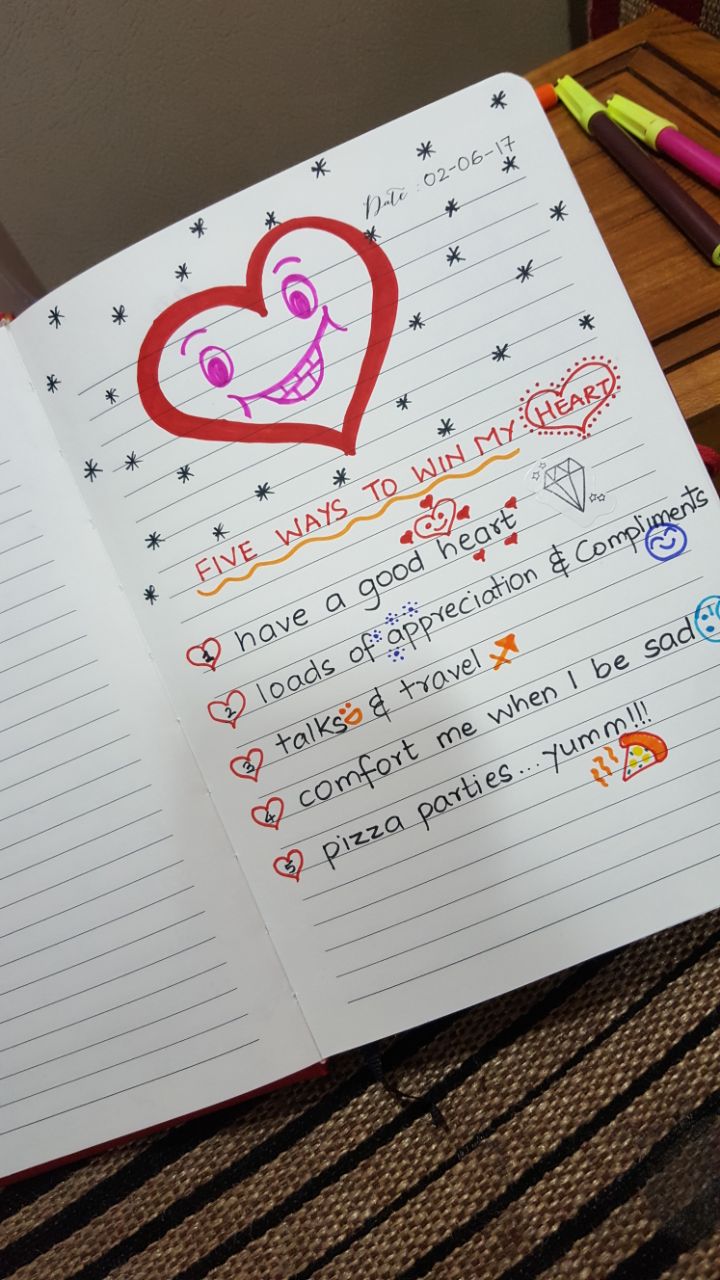 Date : 02-06-17
FIVE WAYS TO WIN MY HEART
1 have a good heart
2 loads of appreciation & Compliments
3 talks & travel
4 comfort me when I be sad
5 pizza parties...yumm!!!